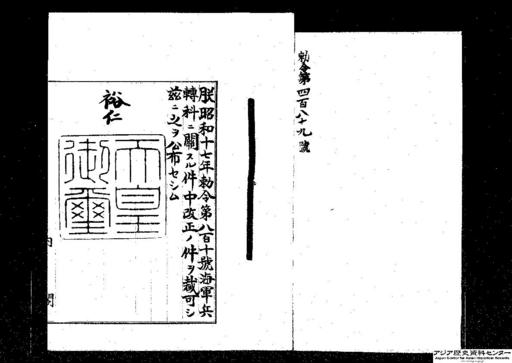 勅令第四百八十九號
朕昭和十七年勅令第八百十號海軍兵
轉科ニ關スル件中改正ノ件ヲ裁可シ
茲ニ之ヲ公布セシム
裕仁
天皇
御璽
内閣
アジア歴史資料センター
Japan Center for Asian Historical Records